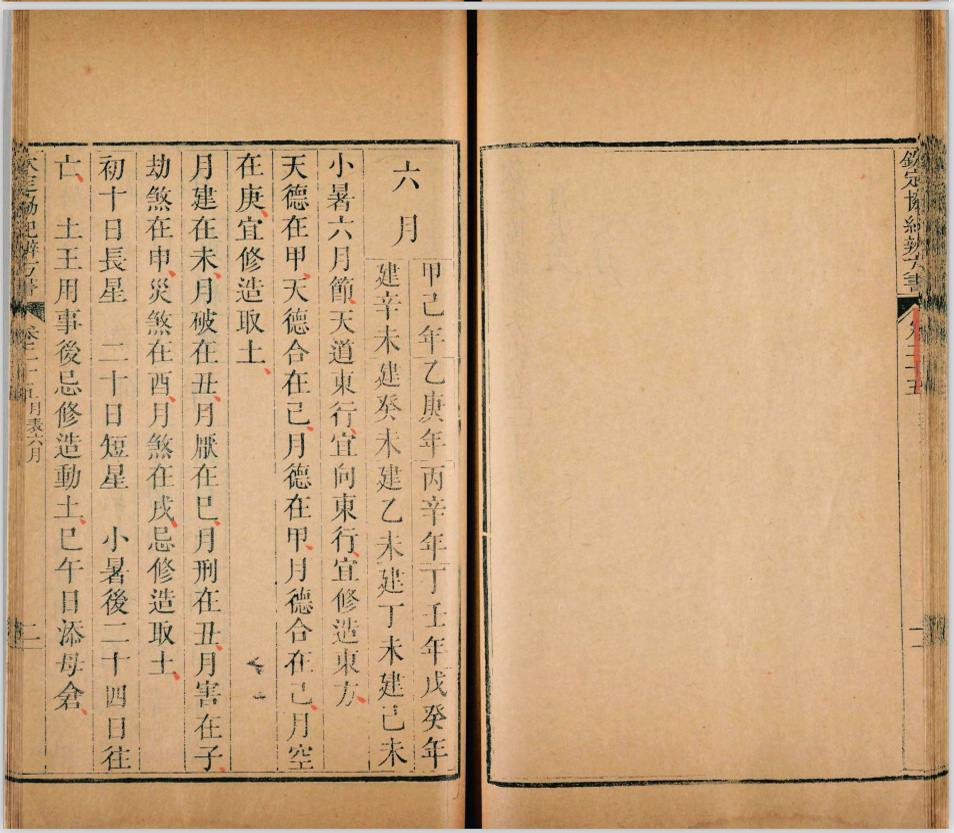 欽定協紀辨方書
卷二十五
二
六月
甲己年乙庚年丙辛年丁壬年戊癸年
建辛未建癸未建乙未建丁未建己未
小暑六月節天道東行宜向東行宜修造東方
天德在甲天德合在己月德在甲月德合在己月空
在庚宜修造取土
月建在未月破在丑月厭在巳月刑在丑月害在子
劫煞在申災煞在酉月煞在戌忌修造取土
初十日長星　二十日短星　小暑後二十四日往
亡　土王用事後忌修造動土巳午日添母倉
月表六月